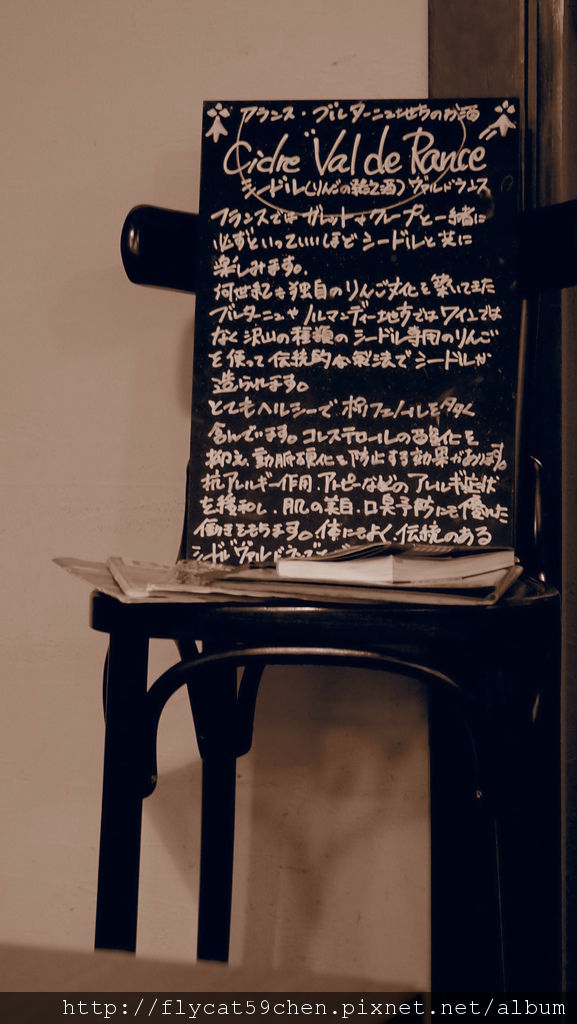 フランス・ブルターニュ地方のお酒
Cidre "Val de Rance
シードル(りんごの発泡酒) ヴァルドランス
フランスではガレットやクレープと一緒に
必ずといっていいほどシードルと共に
楽しみます。
何世紀も独自のりんご文化を築いてきた
ブルターニュやノルマンディー地方ではワインでは
なく沢山の種類のシードル専用のりんご
を使って伝統的な製法でシードルが
造られます。
とてもヘルシーでポリフェノールを多く
含んでいます。コレステロールの酸化を
抑え、動脈硬化を防止する効果があります。
抗アレルギー作用、アトピーなどのアレルギー症状
を緩和し、肌の美白、口臭予防にも優れた
働きをもちます。体にもよく、伝統のある
シードルヴァルドランスで
http://flycat59chen.pixnet.net/album